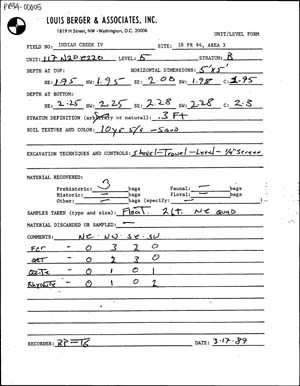 PR94-00605
LOUIS BERGER & ASSOCIATES, INC.
1819 H Street, NW · Washington, D.C. 20006
UNIT/LEVEL FORM
FIELD NO: INDIAN CREEK IV SITE: 18 PR 94, AREA 3
UNIT: 117 N20 E220 LEVEL: 5 STRATUM: B
DEPTH AT TOP: HORIZONTAL DIMENSIONS: 5'x5'
NE: 1.95 NW: 1.95 SE: 2.00 SW: 1.98 C: 1.95
DEPTH AT BOTTOM:
NE: 2.25 NW: 2.25 SE: 2.28 SW: 2.28 C: 2.3
STRATUM DEFINITION (arbitrary or natural): .3 Ft
SOIL TEXTURE AND COLOR: 10yr 5/6 - Sand
EXCAVATION TECHNIQUES AND CONTROLS: Shovel-Trowel-Level- 1/4" Screen
MATERIAL RECOVERED:
Prehistoric: 3 bags Faunal: - bags
Historic: - bags Floral: - bags
Other: - bags (specify: )
SAMPLES TAKEN (type and size): Float. 2 lt. NE QUAD
MATERIAL DISCARDED OR SAMPLED: -
COMMENTS: NE - NW - SE - SW
FCR - 0 3 2 0
QRT - 0 2 3 0
QZ-Te - 0 1 0 1
Rhyolite - 0 1 0 2
RECORDER: RP=TB DATE: 3-17-89